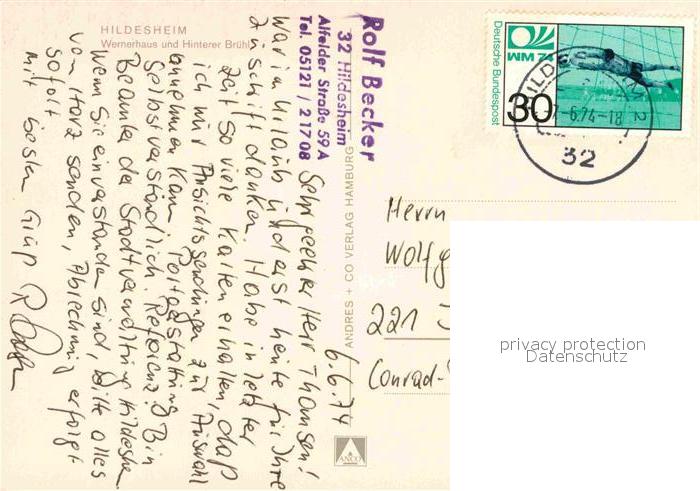 HILDESHEIM
Wernerhaus und Hinterer Brühl
Rolf Becker
32 Hildesheim
Alfelder Straße 59 A
Tel. 05121 / 21708
6.6.74
Sehr geehrter Herr Thomsen!
War in Urlaub und erst heute für Ihre
Zuschrift danken. Habe in letzter
Zeit so viele Karten erhalten, daß
ich nur Ansichtssendungen zur Auswahl
annehmen kann. Portoerstattung
Selbstverständlich. Referenz: Bin
Beamter der Stadtverwaltung Hildesh.
Wenn Sie einverstanden sind, bitte alles
vom Harz senden, Abrechnung erfolgt
sofort
mit besten Gruß
ANDRES + CO VERLAG HAMBURG
ANCO
Deutsche Bundespost
WM 74
30
-6.74-18
32
Herrn
Wolfg
221
Conrad-
privacy protection
Datenschutz